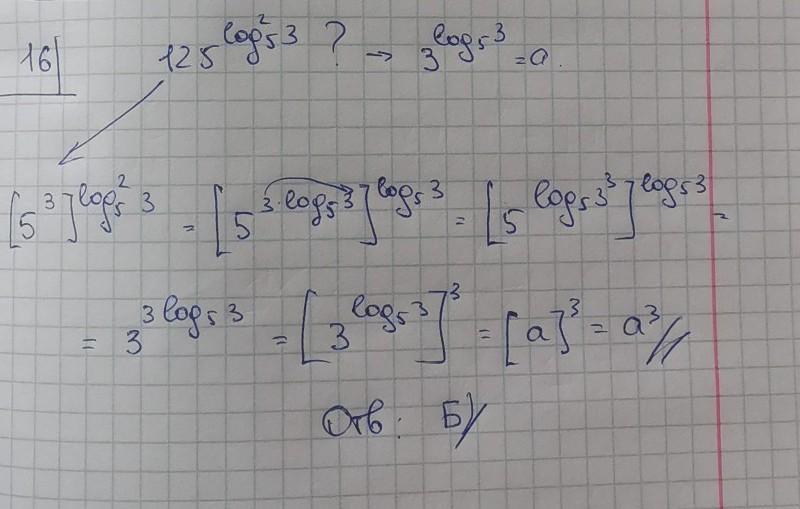 16
125^{log_5^2 3} ? → 3^{log_5 3} = a.
[5^3]^{log_5^2 3} = [5^{3·log_5 3}]^{log_5 3} = [5^{log_5 3^3}]^{log_5 3} =
= 3^{3log_5 3} = [3^{log_5 3}]^3 = [a]^3 = a^3//
Отв: Б)/